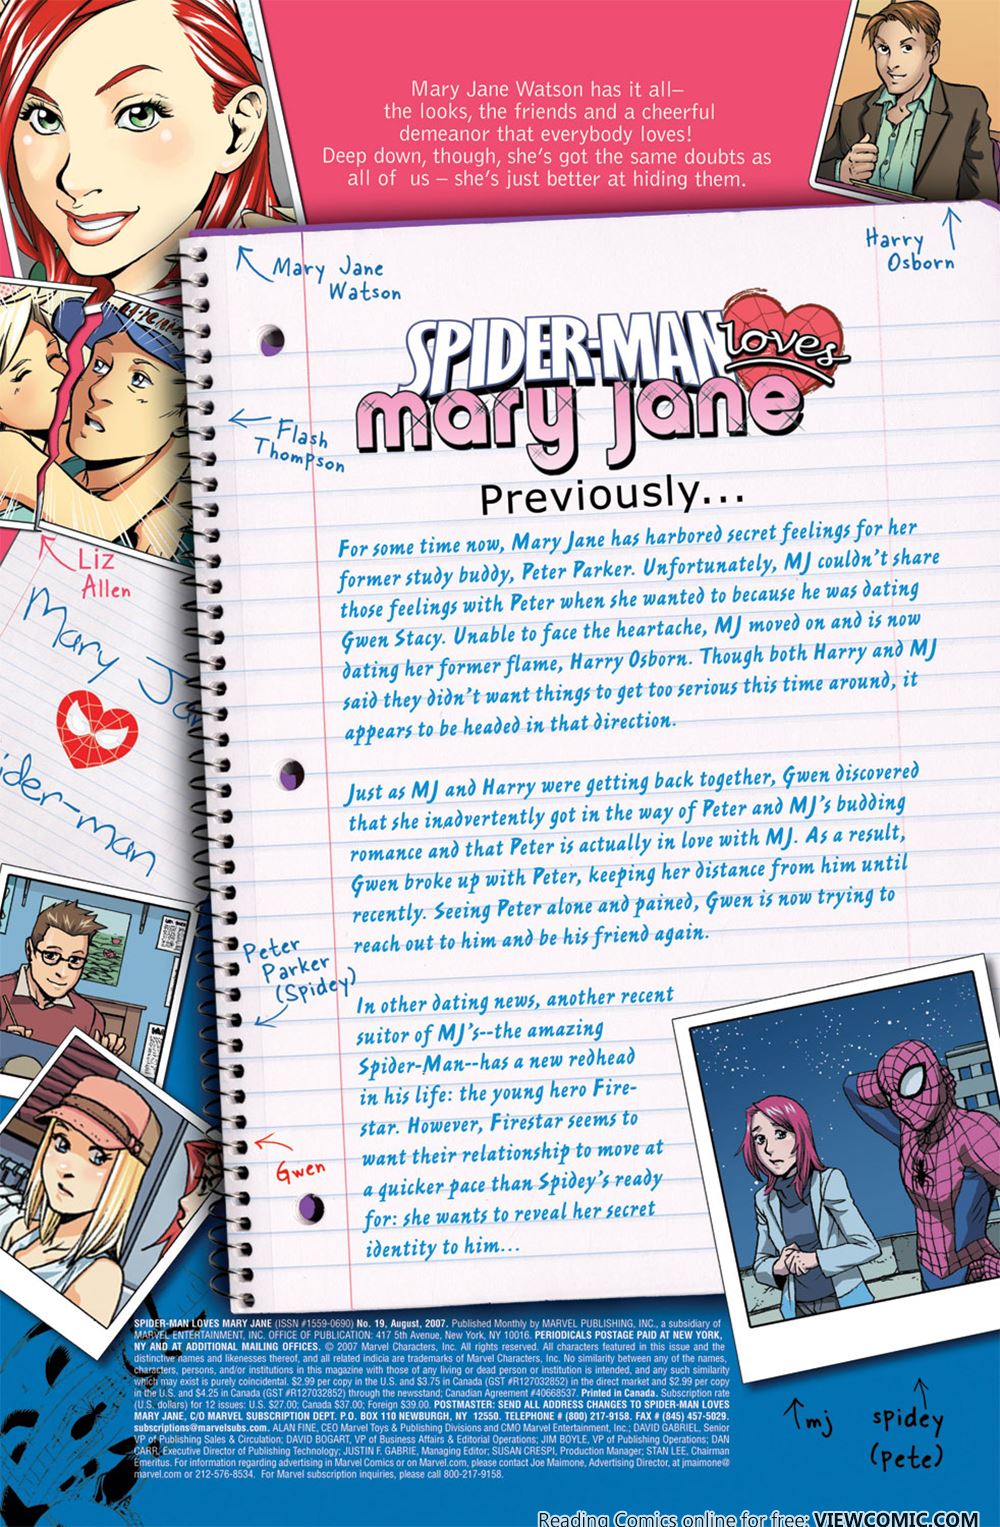 Mary Jane Watson has it all–
the looks, the friends and a cheerful
demeanor that everybody loves!
Deep down, though, she's got the same doubts as
all of us – she's just better at hiding them.
Mary Jane
Watson
Harry
Osborn
SPIDER-MAN loves
mary jane
Flash
Thompson
Previously...
Liz
Allen
Mary Ja
ider-man
For some time now, Mary Jane has harbored secret feelings for her
former study buddy, Peter Parker. Unfortunately, MJ couldn't share
those feelings with Peter when she wanted to because he was dating
Gwen Stacy. Unable to face the heartache, MJ moved on and is now
dating her former flame, Harry Osborn. Though both Harry and MJ
said they didn't want things to get too serious this time around, it
appears to be headed in that direction.
Just as MJ and Harry were getting back together, Gwen discovered
that she inadvertently got in the way of Peter and MJ's budding
romance and that Peter is actually in love with MJ. As a result,
Gwen broke up with Peter, keeping her distance from him until
recently. Seeing Peter alone and pained, Gwen is now trying to
reach out to him and be his friend again.
Peter
Parker
(Spidey)
In other dating news, another recent
suitor of MJ's--the amazing
Spider-Man--has a new redhead
in his life: the young hero Fire-
star. However, Firestar seems to
want their relationship to move at
a quicker pace than Spidey's ready
for: she wants to reveal her secret
identity to him...
Gwen
mj
spidey
(pete)
SPIDER-MAN LOVES MARY JANE (ISSN #1559-0690) No. 19, August, 2007. Published Monthly by MARVEL PUBLISHING, INC., a subsidiary of
MARVEL ENTERTAINMENT, INC. OFFICE OF PUBLICATION: 417 5th Avenue, New York, NY 10016. PERIODICALS POSTAGE PAID AT NEW YORK,
NY AND AT ADDITIONAL MAILING OFFICES. © 2007 Marvel Characters, Inc. All rights reserved. All characters featured in this issue and the
distinctive names and likenesses thereof, and all related indicia are trademarks of Marvel Characters, Inc. No similarity between any of the names,
characters, persons, and/or institutions in this magazine with those of any living or dead person or institution is intended, and any such similarity
which may exist is purely coincidental. $2.99 per copy in the U.S. and $3.75 in Canada (GST #R127032852) in the direct market and $2.99 per copy
in the U.S. and $4.25 in Canada (GST #R127032852) through the newsstand; Canadian Agreement #40668537. Printed in Canada. Subscription rate
(U.S. dollars) for 12 issues: U.S. $27.00; Canada $37.00; Foreign $39.00. POSTMASTER: SEND ALL ADDRESS CHANGES TO SPIDER-MAN LOVES
MARY JANE, C/O MARVEL SUBSCRIPTION DEPT. P.O. BOX 110 NEWBURGH, NY 12550. TELEPHONE # (800) 217-9158. FAX # (845) 457-5029.
subscriptions@marvelsubs.com. ALAN FINE, CEO Marvel Toys & Publishing Divisions and CMO Marvel Entertainment, Inc.; DAVID GABRIEL, Senior
VP of Publishing Sales & Circulation; DAVID BOGART, VP of Business Affairs & Editorial Operations; JIM BOYLE, VP of Publishing Operations; DAN
CARR, Executive Director of Publishing Technology; JUSTIN F. GABRIE, Managing Editor; SUSAN CRESPI, Production Manager; STAN LEE, Chairman
Emeritus. For information regarding advertising in Marvel Comics or on Marvel.com, please contact Joe Maimone, Advertising Director, at jmaimone@
marvel.com or 212-576-8534. For Marvel subscription inquiries, please call 800-217-9158.
Reading Comics online for free: VIEWCOMIC.COM